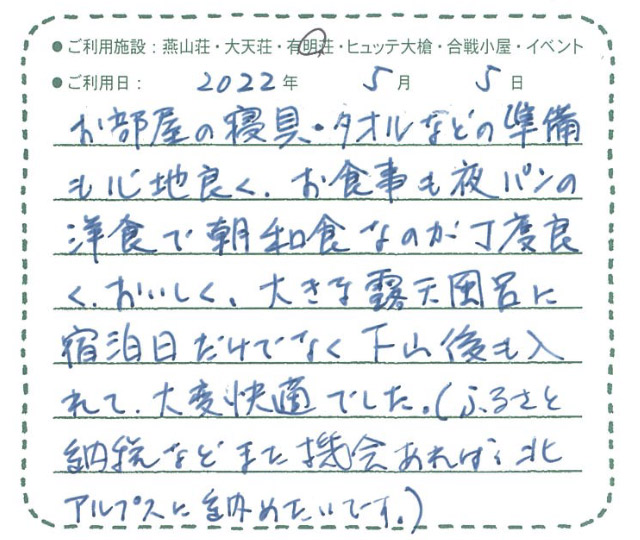 ●ご利用施設：燕山荘・大天荘・有明荘・ヒュッテ大槍・合戦小屋・イベント
●ご利用日： 2022年 5月 5日
お部屋の寝具・タオルなどの準備
も心地良く、お食事も夜パンの
洋食で朝和食なのが丁度良
く、おいしく、大きな露天風呂に
宿泊日だけでなく下山後も入
れて、大変快適でした。(ふるさと
納税などまた機会あれば北
アルプスに納めたいです。)